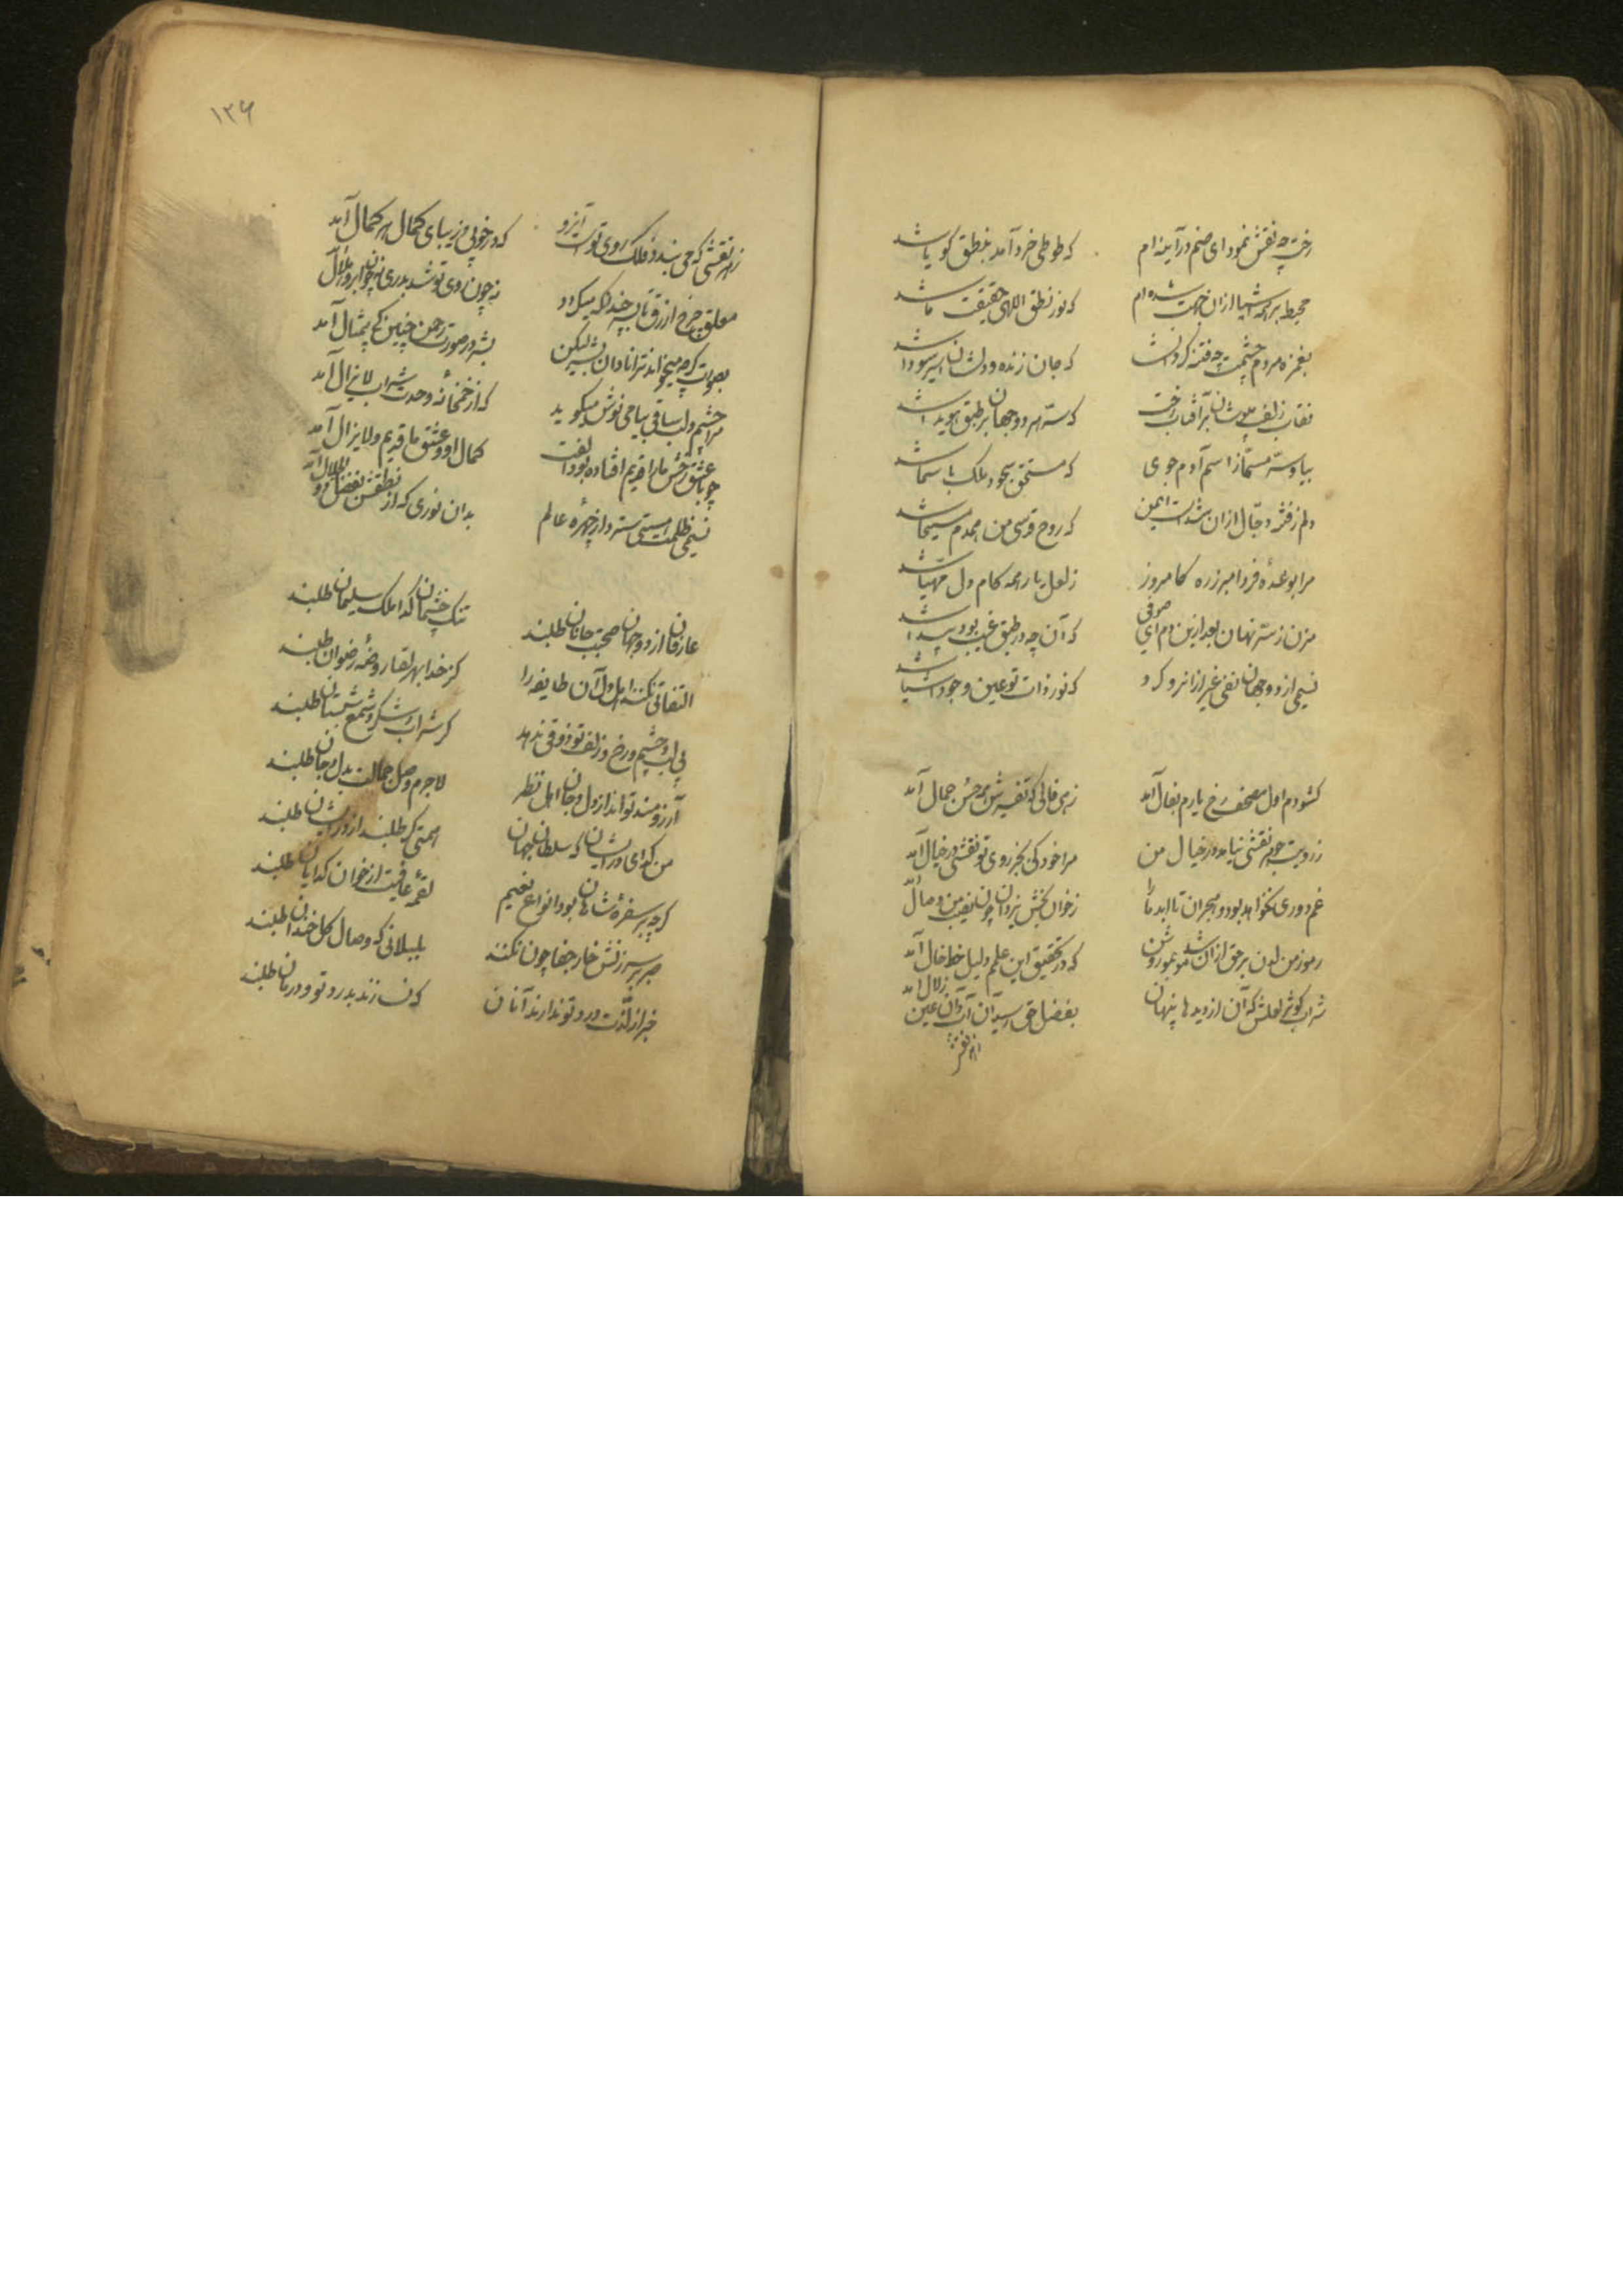 رخت چه نقش نمود ای صنم در آینه‌ام که طوطی خرد آمد به نطق گویا شد
محیط بر همه اشیا از آن جهت شده‌ام که نور نطق الهی حقیقت ما شد
بغمزه مردم چشمت چه فتنه کرد که جان زنده‌دلان اسیر سودا شد
نقاب زلف بر آفتاب رخت که سر هر دو جهان بر طبق هویدا شد
بیا و سر مسما ز اسم آدم جوی که مستحق سجود ملک با سما شد
دلم ز فتنه دجال از آن شدست ایمن که روح قدسی من همدم مسیحا شد
مرا بوعده فردا مبر ز ره کامروز ز لعل یار همه کام دل مهیا شد
مزن ز سر نهان بعد ازین دم ای صوفی که آن چه در طبق غیب بود پیدا شد
نسیمی از دو جهان نفی غیر از آنرو کرد که نور ذات تو عین وجود اشیا شد
کشودم اول مصحف رخ یارم بفال آمد زهی فالی که تفسیرش همه حسن جمال آمد
ز رویت خوبتر نقشی نیامد در خیال من مرا خود کی بجز روی تو نقشی در خیال آمد
غم دوری نخواهد بود و هجران تا ابد ما را ز خوان بخش یزدان چون نصیب من وصال آمد
رموز من لدن بر حق از آن شد مو بمو روشن که در تحقیق این علم دلیل خط و خال آمد
شراب کوثر لعلش که آن از دیدها پنهان بفضل حق رسید آن آب زلال آمد
ازهر نقش
۱۲۶
ز هر نقشی که می بندد فلک روی تو است آنرو که در خوبی و زیبای کمال هر کمال آمد
معلق چرخ ازرق تا بپ چندانکه میگردد نه چون روی تو شد بدری نه چون ابرو هلال آمد
بصورت گرچه میخواند ترا نادان بشر لیکن بشر در صورت رحمن چنین کی بیمثال آمد
مرا چشم و لب ساقی بیا می نوش میگوید که از خمخانه وحدت شراب لایزال آمد
چو با عشق رخش ما را قدیم افتاده بود الفت کمال او و عشق ما قدیم و لایزال آمد
نسیمی ظلمت هستی سترد از چهره عالم بدان نوری که از نطقش بفضل ذو الجلال آمد
عارفان از دو جهان صحبت جانان طلبند تنگ چشمان گدا ملک سلیمان طلبند
التفاتی نکند اهل دل آن طایفه را کز خدا بهر لقا روضه رضوان طلبند
بی لب و چشم و رخ و زلف تو ذوقی ندهد گر شراب و شکر و شمع شبستان طلبند
آرزومند تواند از دل و جان اهل نظر لاجرم وصل جمالت بدل و جان طلبند
من گدای در ایشان که سلطان جهان همتی گر طلبند از در ایشان طلبند
گرچه بر سفره شاهان بود انواع نعیم لقمه عافیت از خوان گدایان طلبند
صبر بر سرزنش خار جفا چون نکنند بلبلانی که وصال گل خندان طلبند
خبر از لذت درد تو ندارند آنان که نسازند بدرد تو و درمان طلبند